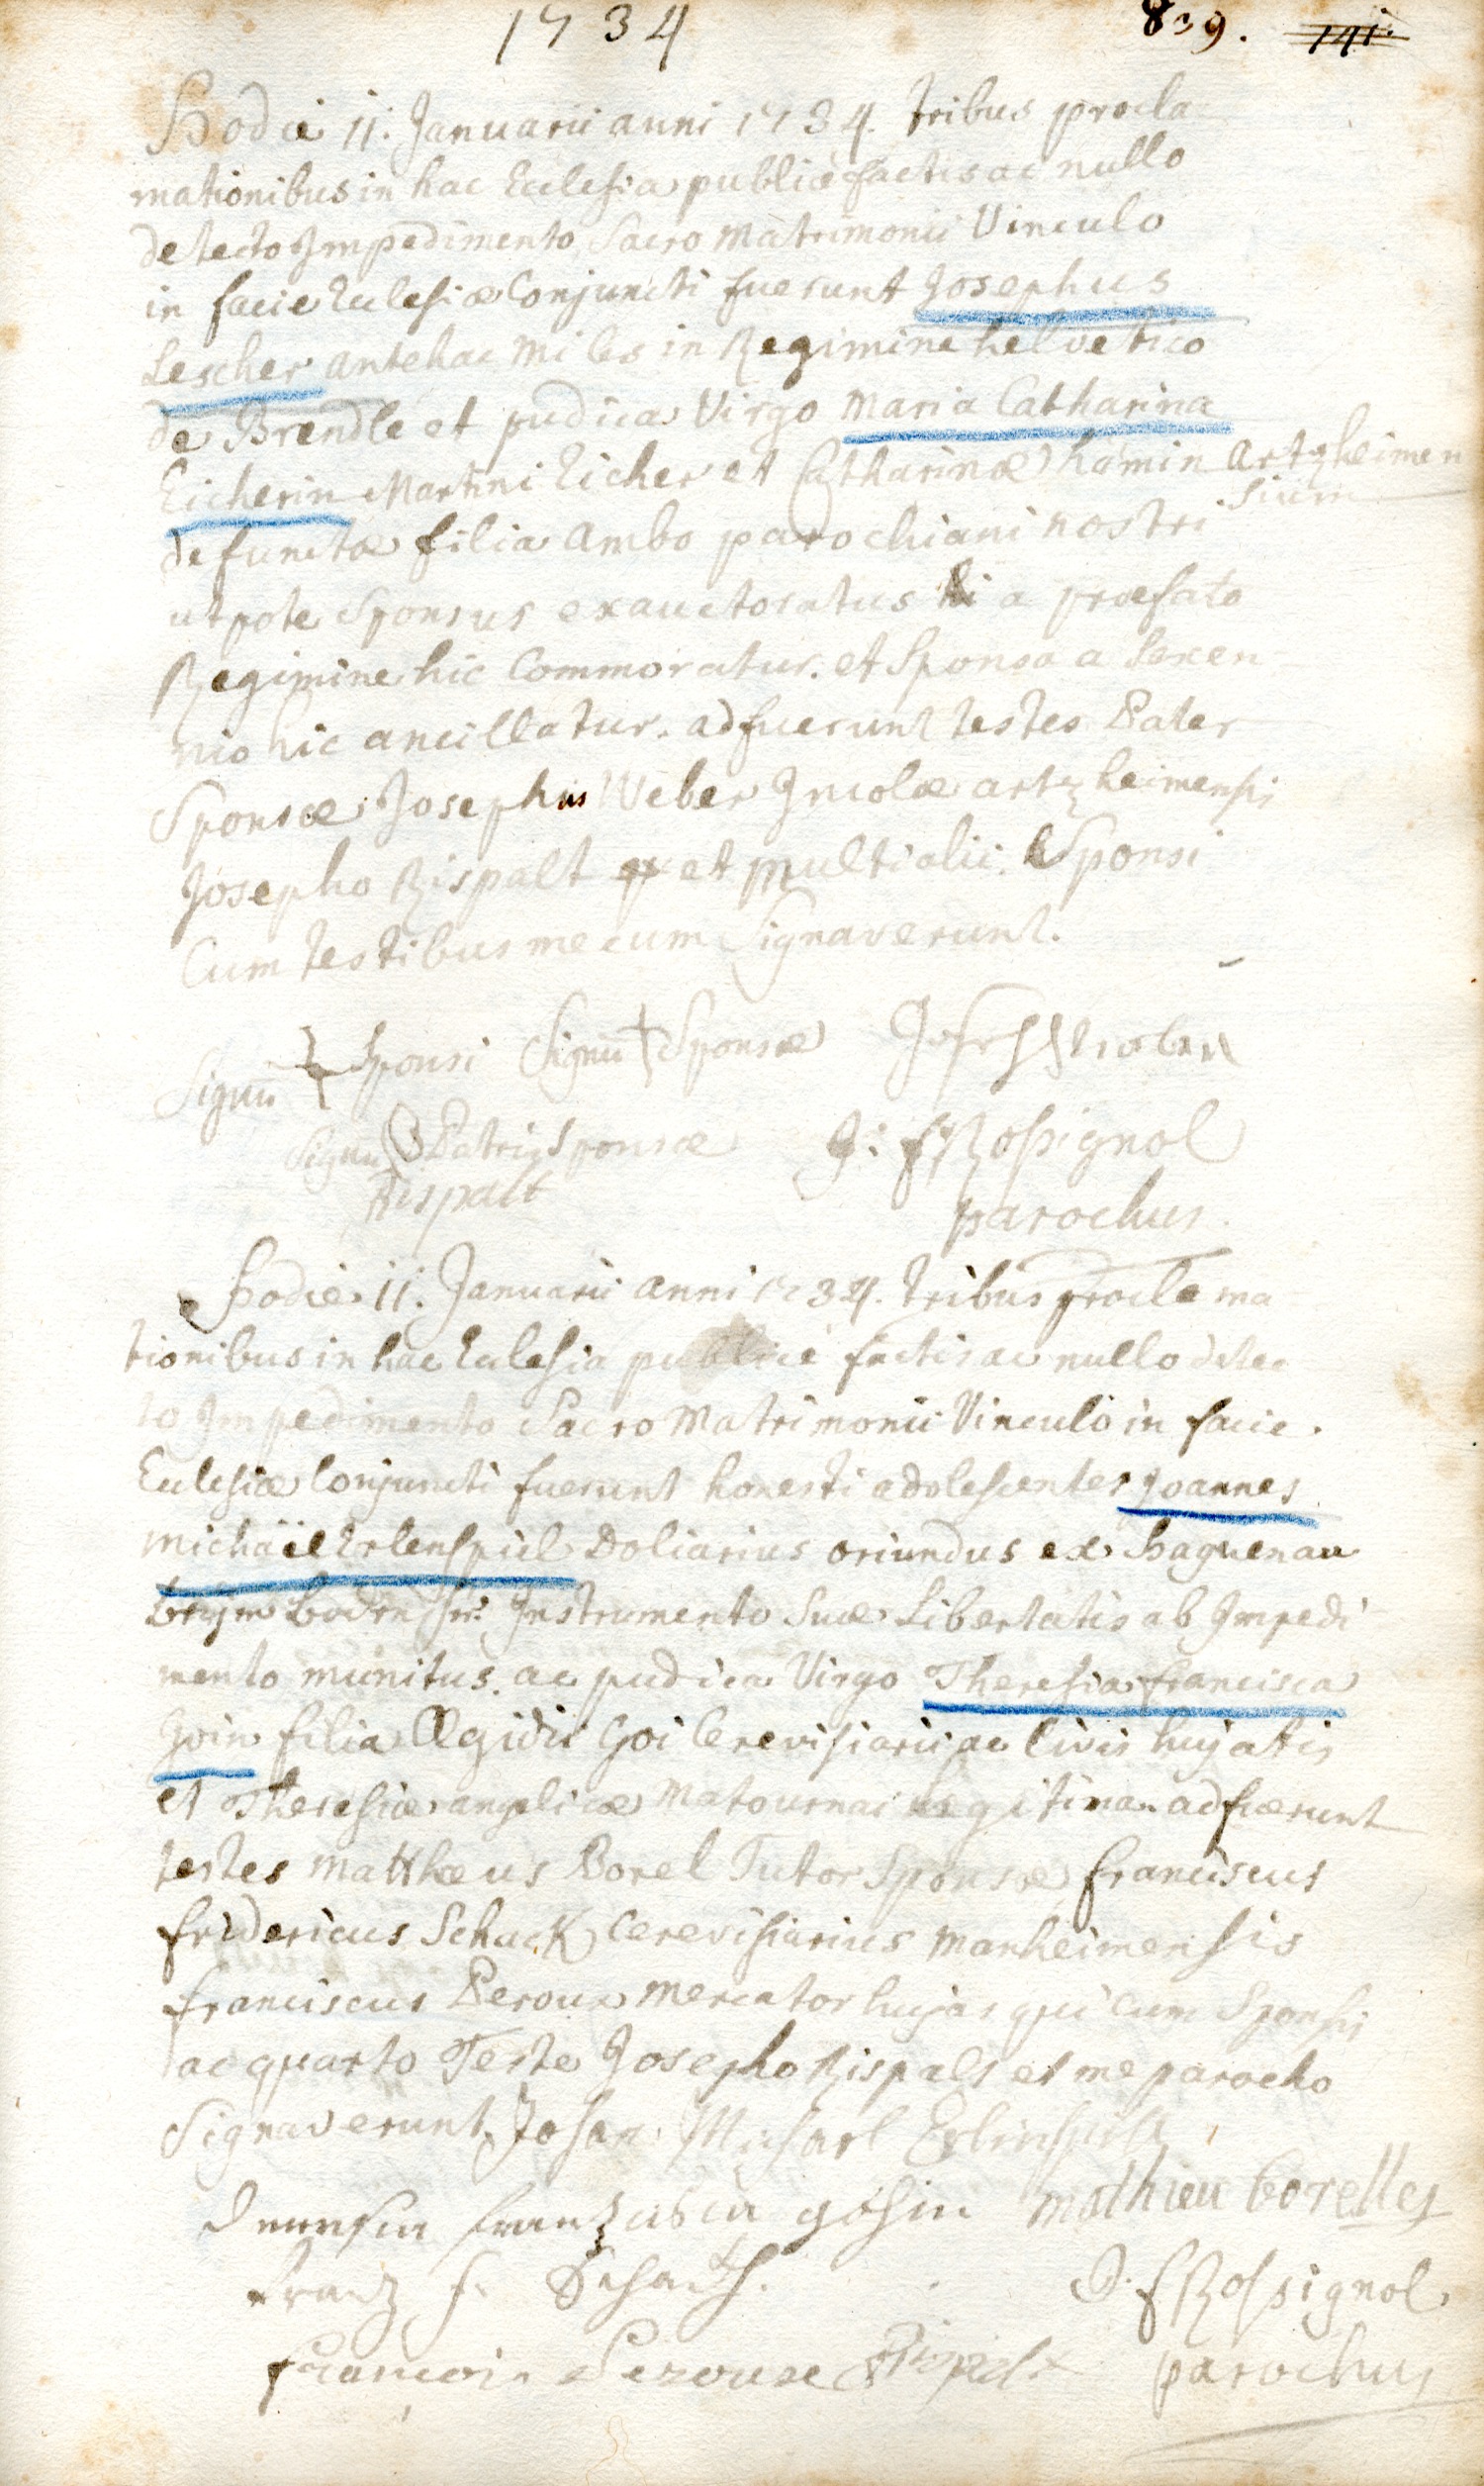 1734 839. 141.
Hodie 11. Januarii anni 1734. tribus procla
mationibus in hac Ecclesia publicè factis ac nullo
detecto Impedimento Sacro Matrimonii Vinculo
in facie Ecclesiæ Conjuncti fuerunt Josephus
Lescher antehac Miles in Regimine helvetico
de Brendle et pudica Virgo Maria Catharina
Eicherin Martini Eicher et Catharinæ hamin Artzheimen
sium
defunctæ filia Ambo parochiani nostri
utpote Sponsus exauctoratus a præfato
Regimine hic Commoratur. et Sponsa a Sexen
nio hic ancillatur. adfuerunt testes Pater
Sponsæ Josephus Weber Incolæ artzheimensis
Josepho Rispalt et multi alii. Sponsi
Cum testibus mecum Signaverunt.
Signū Sponsi Signū + Sponsæ
Signū Patris Sponsæ J: f Rossignol
Rispalt parochus
Hodie 11. Januarii anni 1734. tribus proclama
tionibus in hac Ecclesia publicè factis ac nullo detec
to Impedimento Sacro Matrimonii Vinculo in facie.
Ecclesiæ Conjuncti fuerunt honesti adolescentes Joannes
Michäel Erlenspiel Doliarius oriundus ex Haguenau
Instrumento Suæ Libertatis ab Impedi
mento munitus. ac pudica Virgo Theresia francisca
Goin filia Ægidii Goi Cerevisiarii ac Civis hujatis
et Theresiæ angelicæ Matournai Legitima. adfuerunt
testes Matthæus Borel Tutor Sponsæ franciscus
fridericus Schuck Cerevisiarius Manheimensis
franciscus Peroux Mercator hujas qui cum Sponsis
ac quarto Teste Josepho Rispalt et me parocho
Signaverunt. Johan Michael Erlenspiel
frantzisca gohin mathieu Borelley
Frantz f. J. f Rossignol
francois Perouse Rispalt parochus